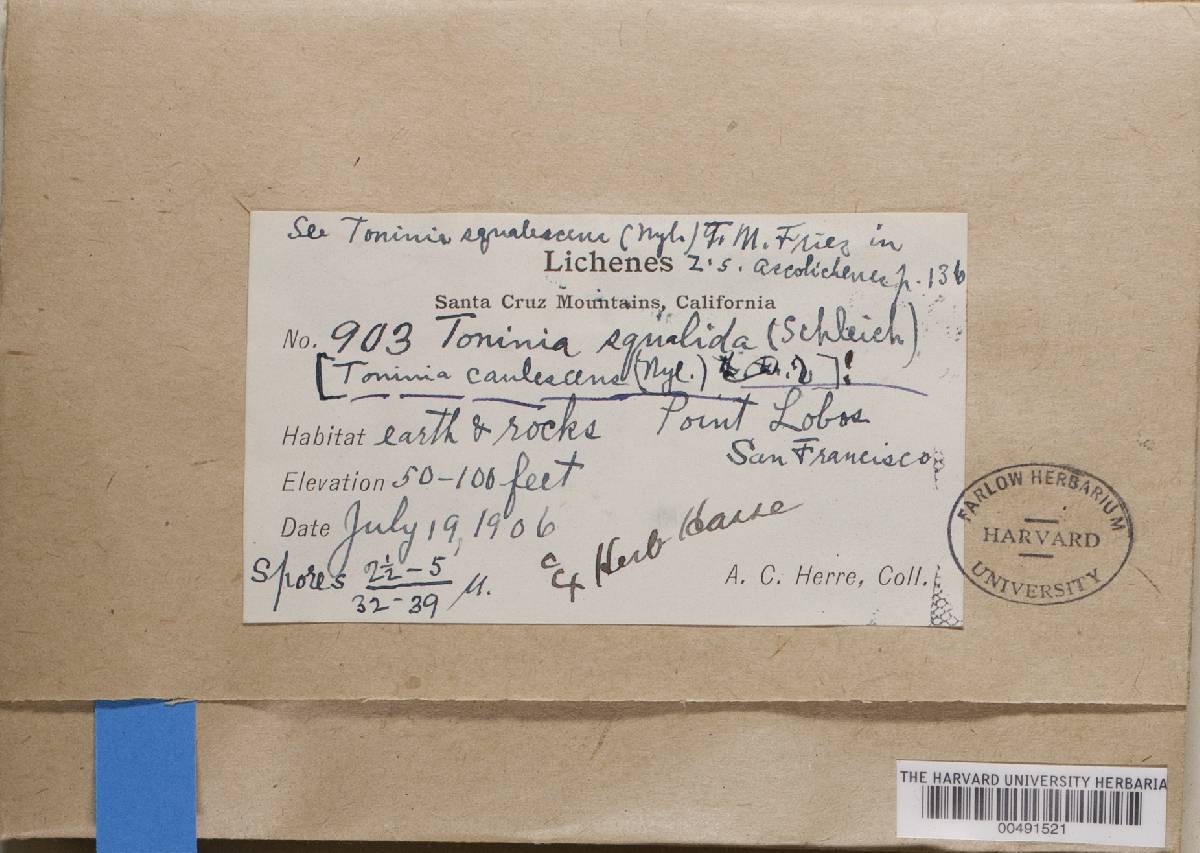 See Toninia squalescens (Nyl.) Th. M. Friez in
Lichenes Z.S. Ascolichenes p. 136
Santa Cruz Mountains, California
No. 903 Toninia squalida (Schleich)
[Toninia caulescens (Nyl.) ]!
Habitat earth & rocks Point Lobos
San Francisco
Elevation 50-100 feet
Date July 19, 1906
Spores 2½-5
32-39 μ.
Herb Hasse
A. C. Herre, Coll.
FARLOW HERBARIUM
HARVARD
UNIVERSITY
THE HARVARD UNIVERSITY HERBARIA
00491521